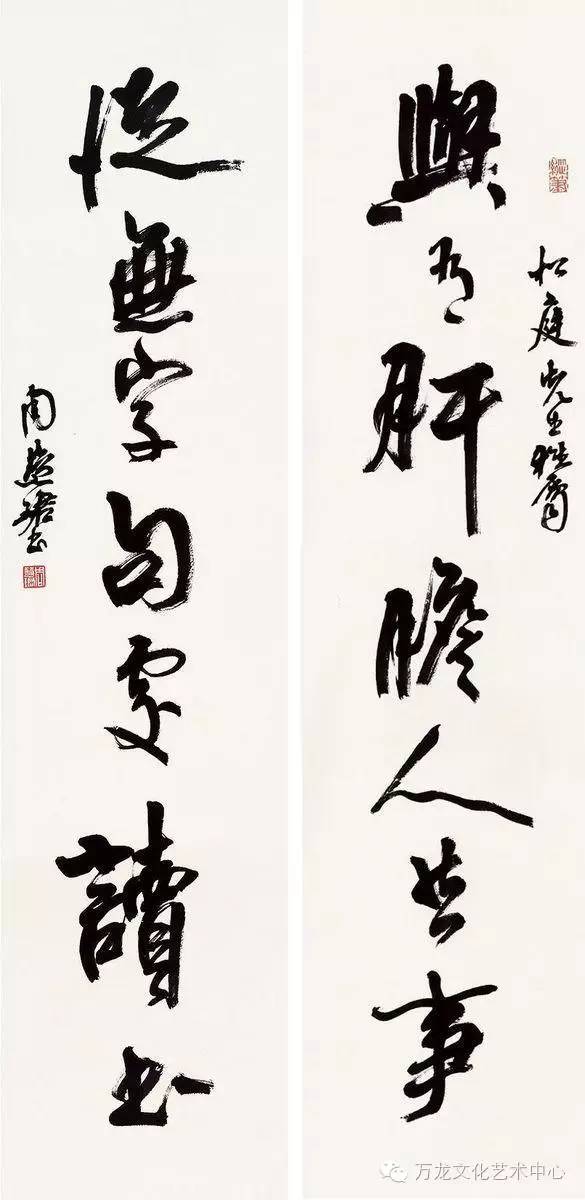 與有肝膽人共事
松庭先生雅屬
從無字句處讀書
周慧珺書
万龙文化艺术中心